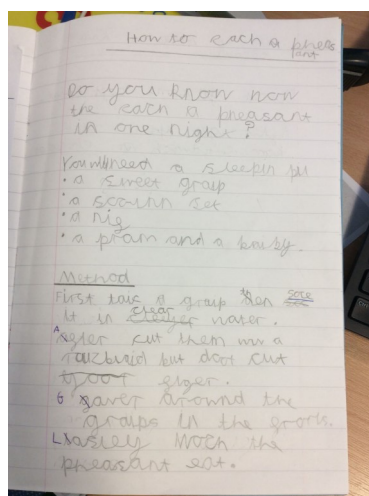 How to catch a pheas
ant
Do you know how
the catch a pheasant
in one night?
You will need a sleepin pil
• a sweet grap
• a scounn set
• a nig
• a pram and a baiby.
Method
First take a grap then soce
it in clear water.
After cut them wiv a
but doot cut
your figer.
G gaver around the
graps in the grorls.
Lastley woch the
pheasant eat.